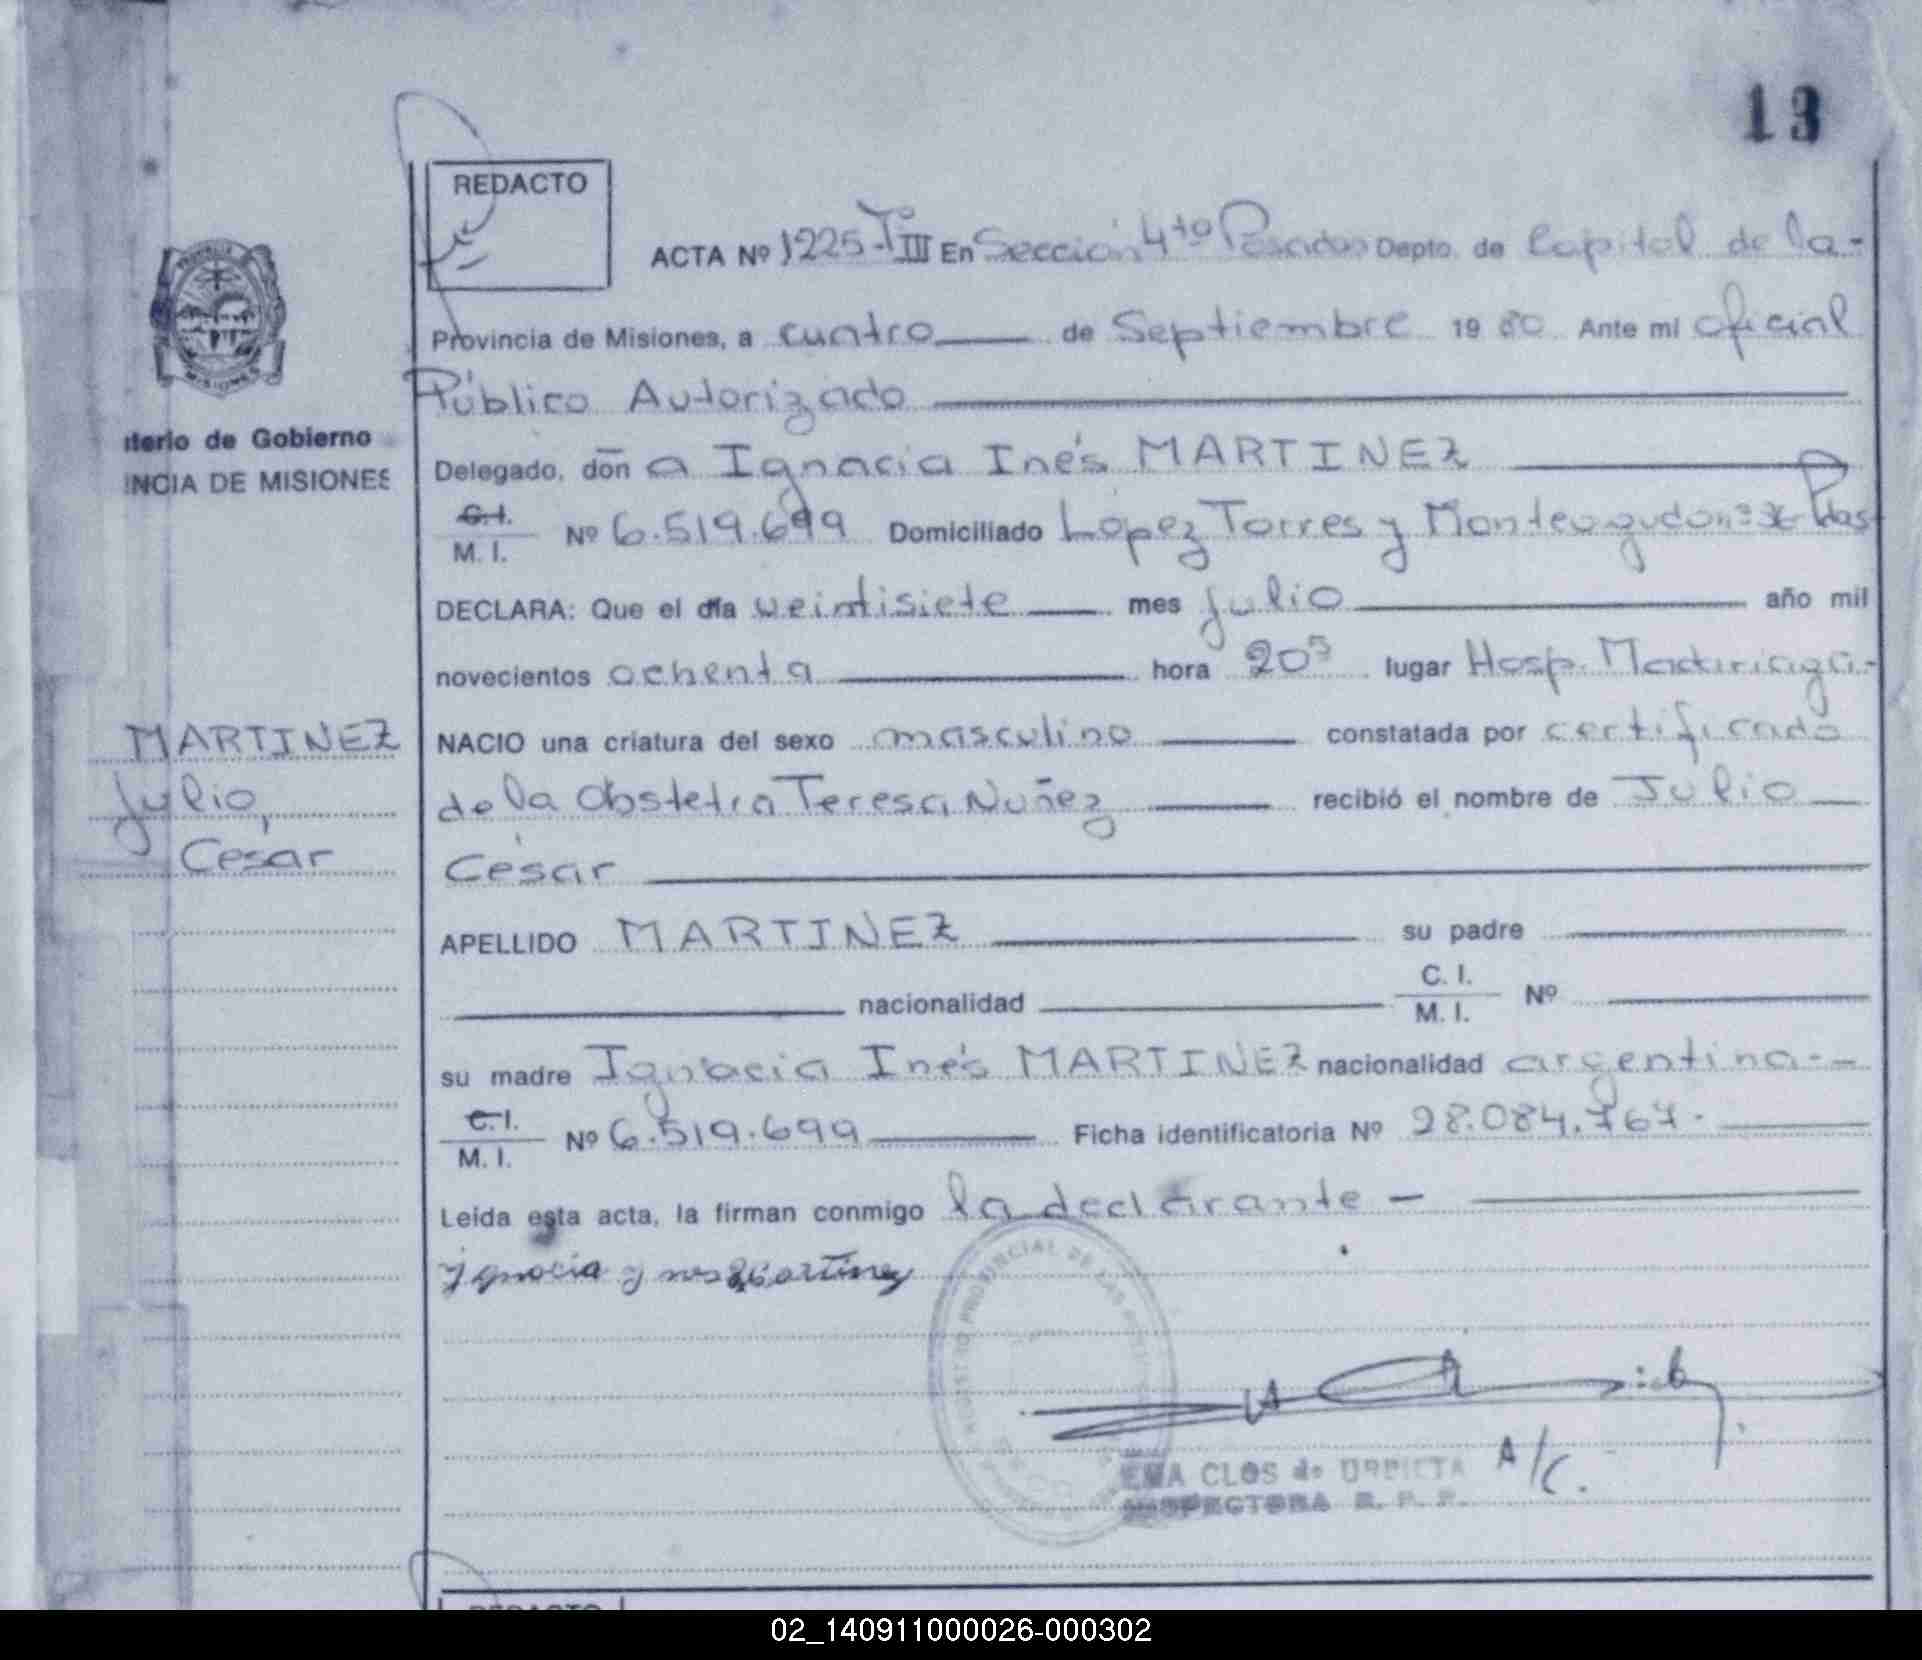 13
REDACTO
ACTA Nº 1225-Tº III En Sección 4to Posadas Depto. de Capital de la-
Provincia de Misiones, a cuatro de Septiembre 19 80 Ante mi Oficial
Público Autorizado
Delegado, don a Ignacia Inés MARTINEZ
C.I.
M. I. Nº 6.519.699 Domiciliado López Torres y Monteagudo Pdas
DECLARA: Que el día veintisiete mes Julio año mil
novecientos ochenta hora 20⁵ lugar Hosp. Madariaga-
NACIO una criatura del sexo masculino constatada por certificado
de la Obstetra Teresa Nuñez recibió el nombre de Julio
César
APELLIDO MARTINEZ su padre
nacionalidad C. I.
M. I. Nº
su madre Ignacia Inés MARTINEZ nacionalidad argentina--
C.I.
M. I. Nº 6.519.699 Ficha identificatoria Nº 28.084.767-
Leída esta acta, la firman conmigo la declarante -
Ignacia Ynes Martinez
A/C.
EMA CLOS de URBIETA
INSPECTORA R. P. P.
REGISTRO PROVINCIAL DE LAS
PROVINCIA
MISIONES
sterio de Gobierno
INCIA DE MISIONES
MARTINEZ
Julio,
César
REDACTO
02_140911000026-000302